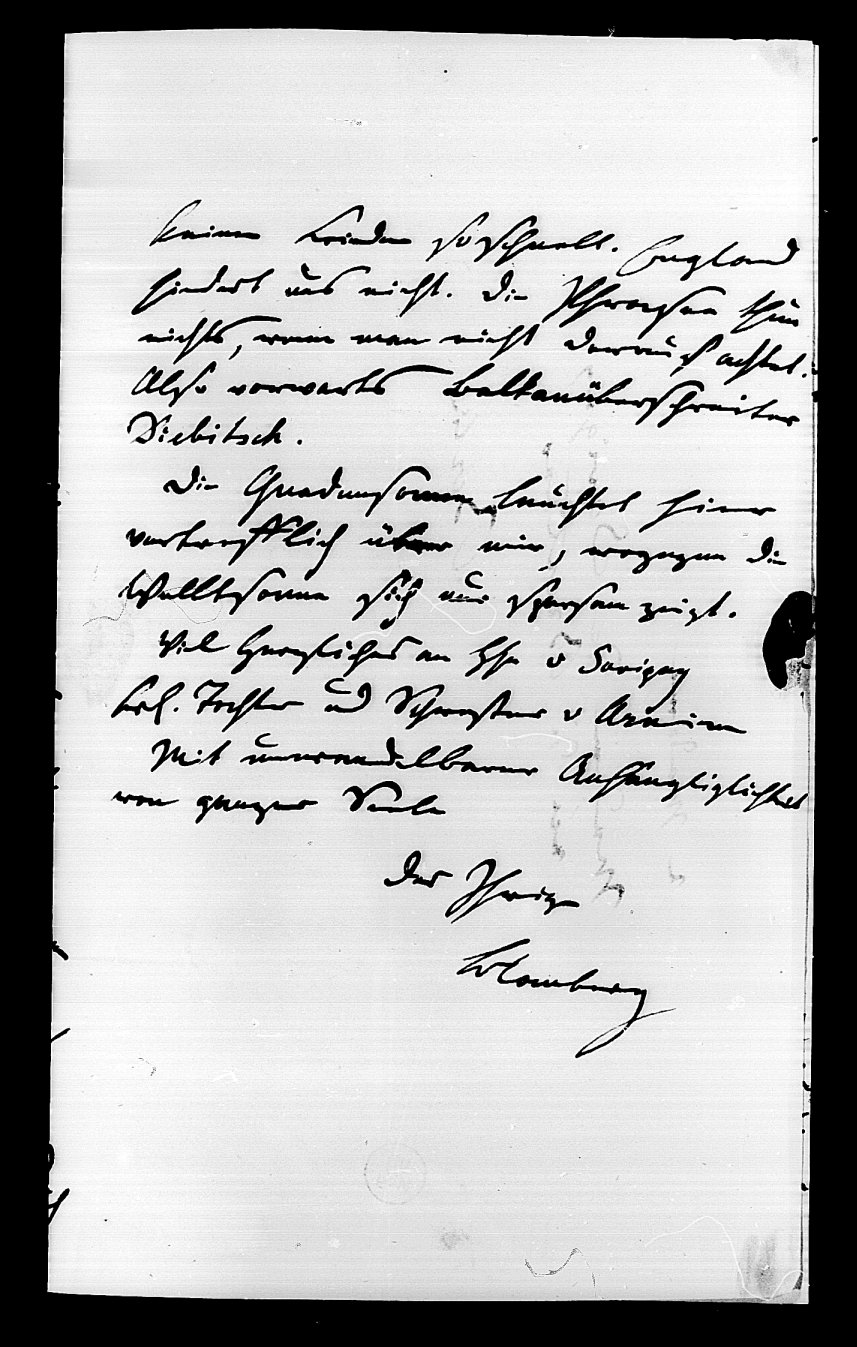 keinen Frieden so schnell. England
hindert uns nicht. Die Phrasen thun
nichts, wenn man nicht darauf achtet.
Also vorwarts Balkanüberschreiter
Diebitsch.
Die Gnadensonne leuchtet hier
vortrefflich über mir, wogegen die
Weltsonne sich nur sparsam zeigt.
Viel Herzliches an v Savigny
Tochter und Schwester v Arnim
Mit unwandelbarer Anhänglichkeit
von ganzer Seele
Der Ihrige
Blomberg